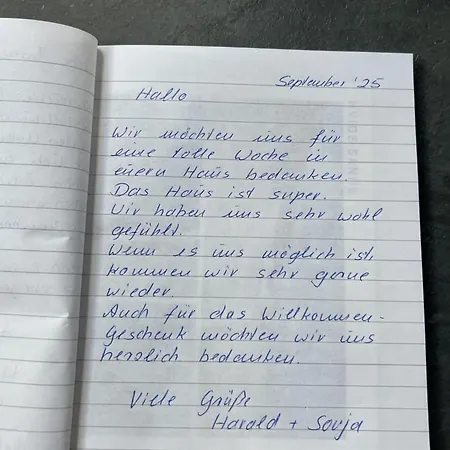 September '25
Hallo
Wir möchten uns für
eine tolle Woche in
euern Haus bedanken.
Das Haus ist super.
Wir haben uns sehr wohl
gefühlt.
Wenn es uns möglich ist,
kommen wir sehr gerne
wieder.
Auch für das Willkommen-
geschenk möchten wir uns
herzlich bedanken.
Viele Grüße
Harald + Sonja